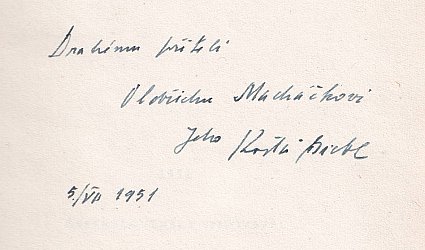 Drahému příteli
Oldřichu Macháčkovi
Jeho Kosťa Biebl
5/VII 1951